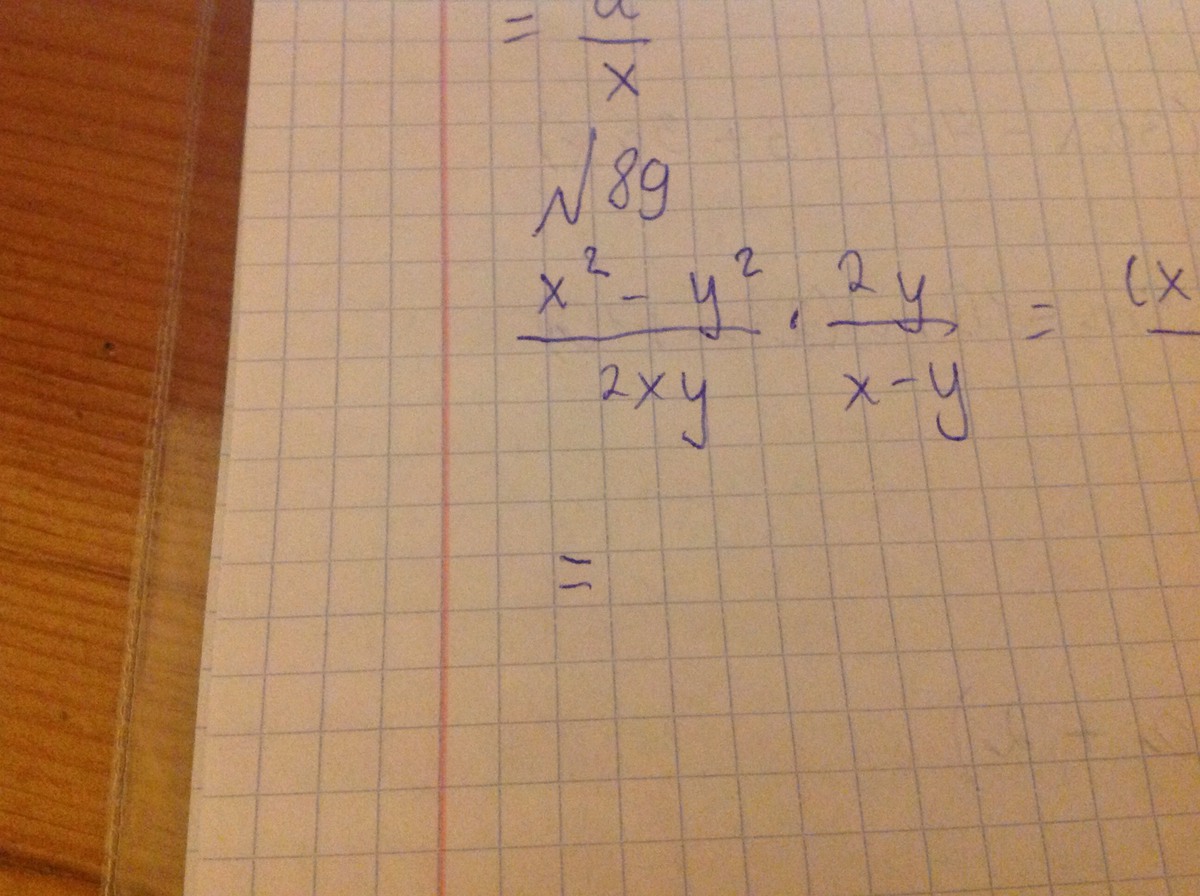 = a/x
√89
x² - y² / 2xy · 2y / x - y = (x
=